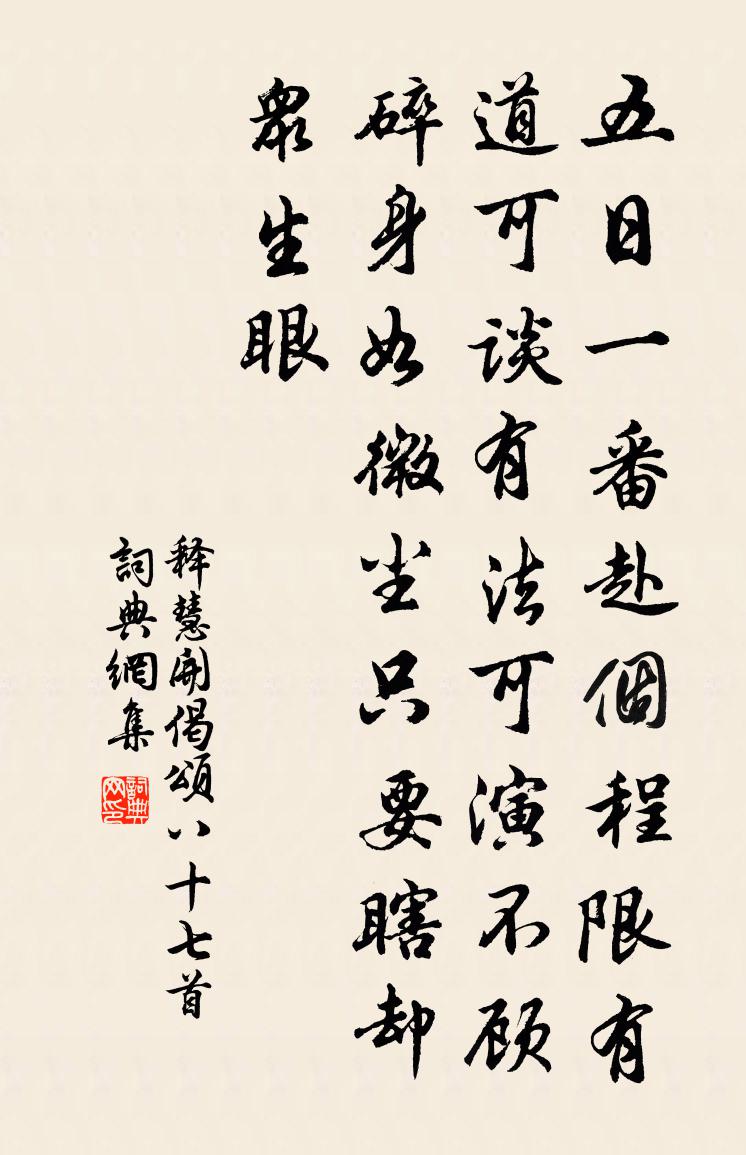 五日一番赴個程限有
道可談有法可演不顾
碎身如微尘只要瞎却
眾生眼
释慧開偈頌八十七首
詞典網集
詞典網印